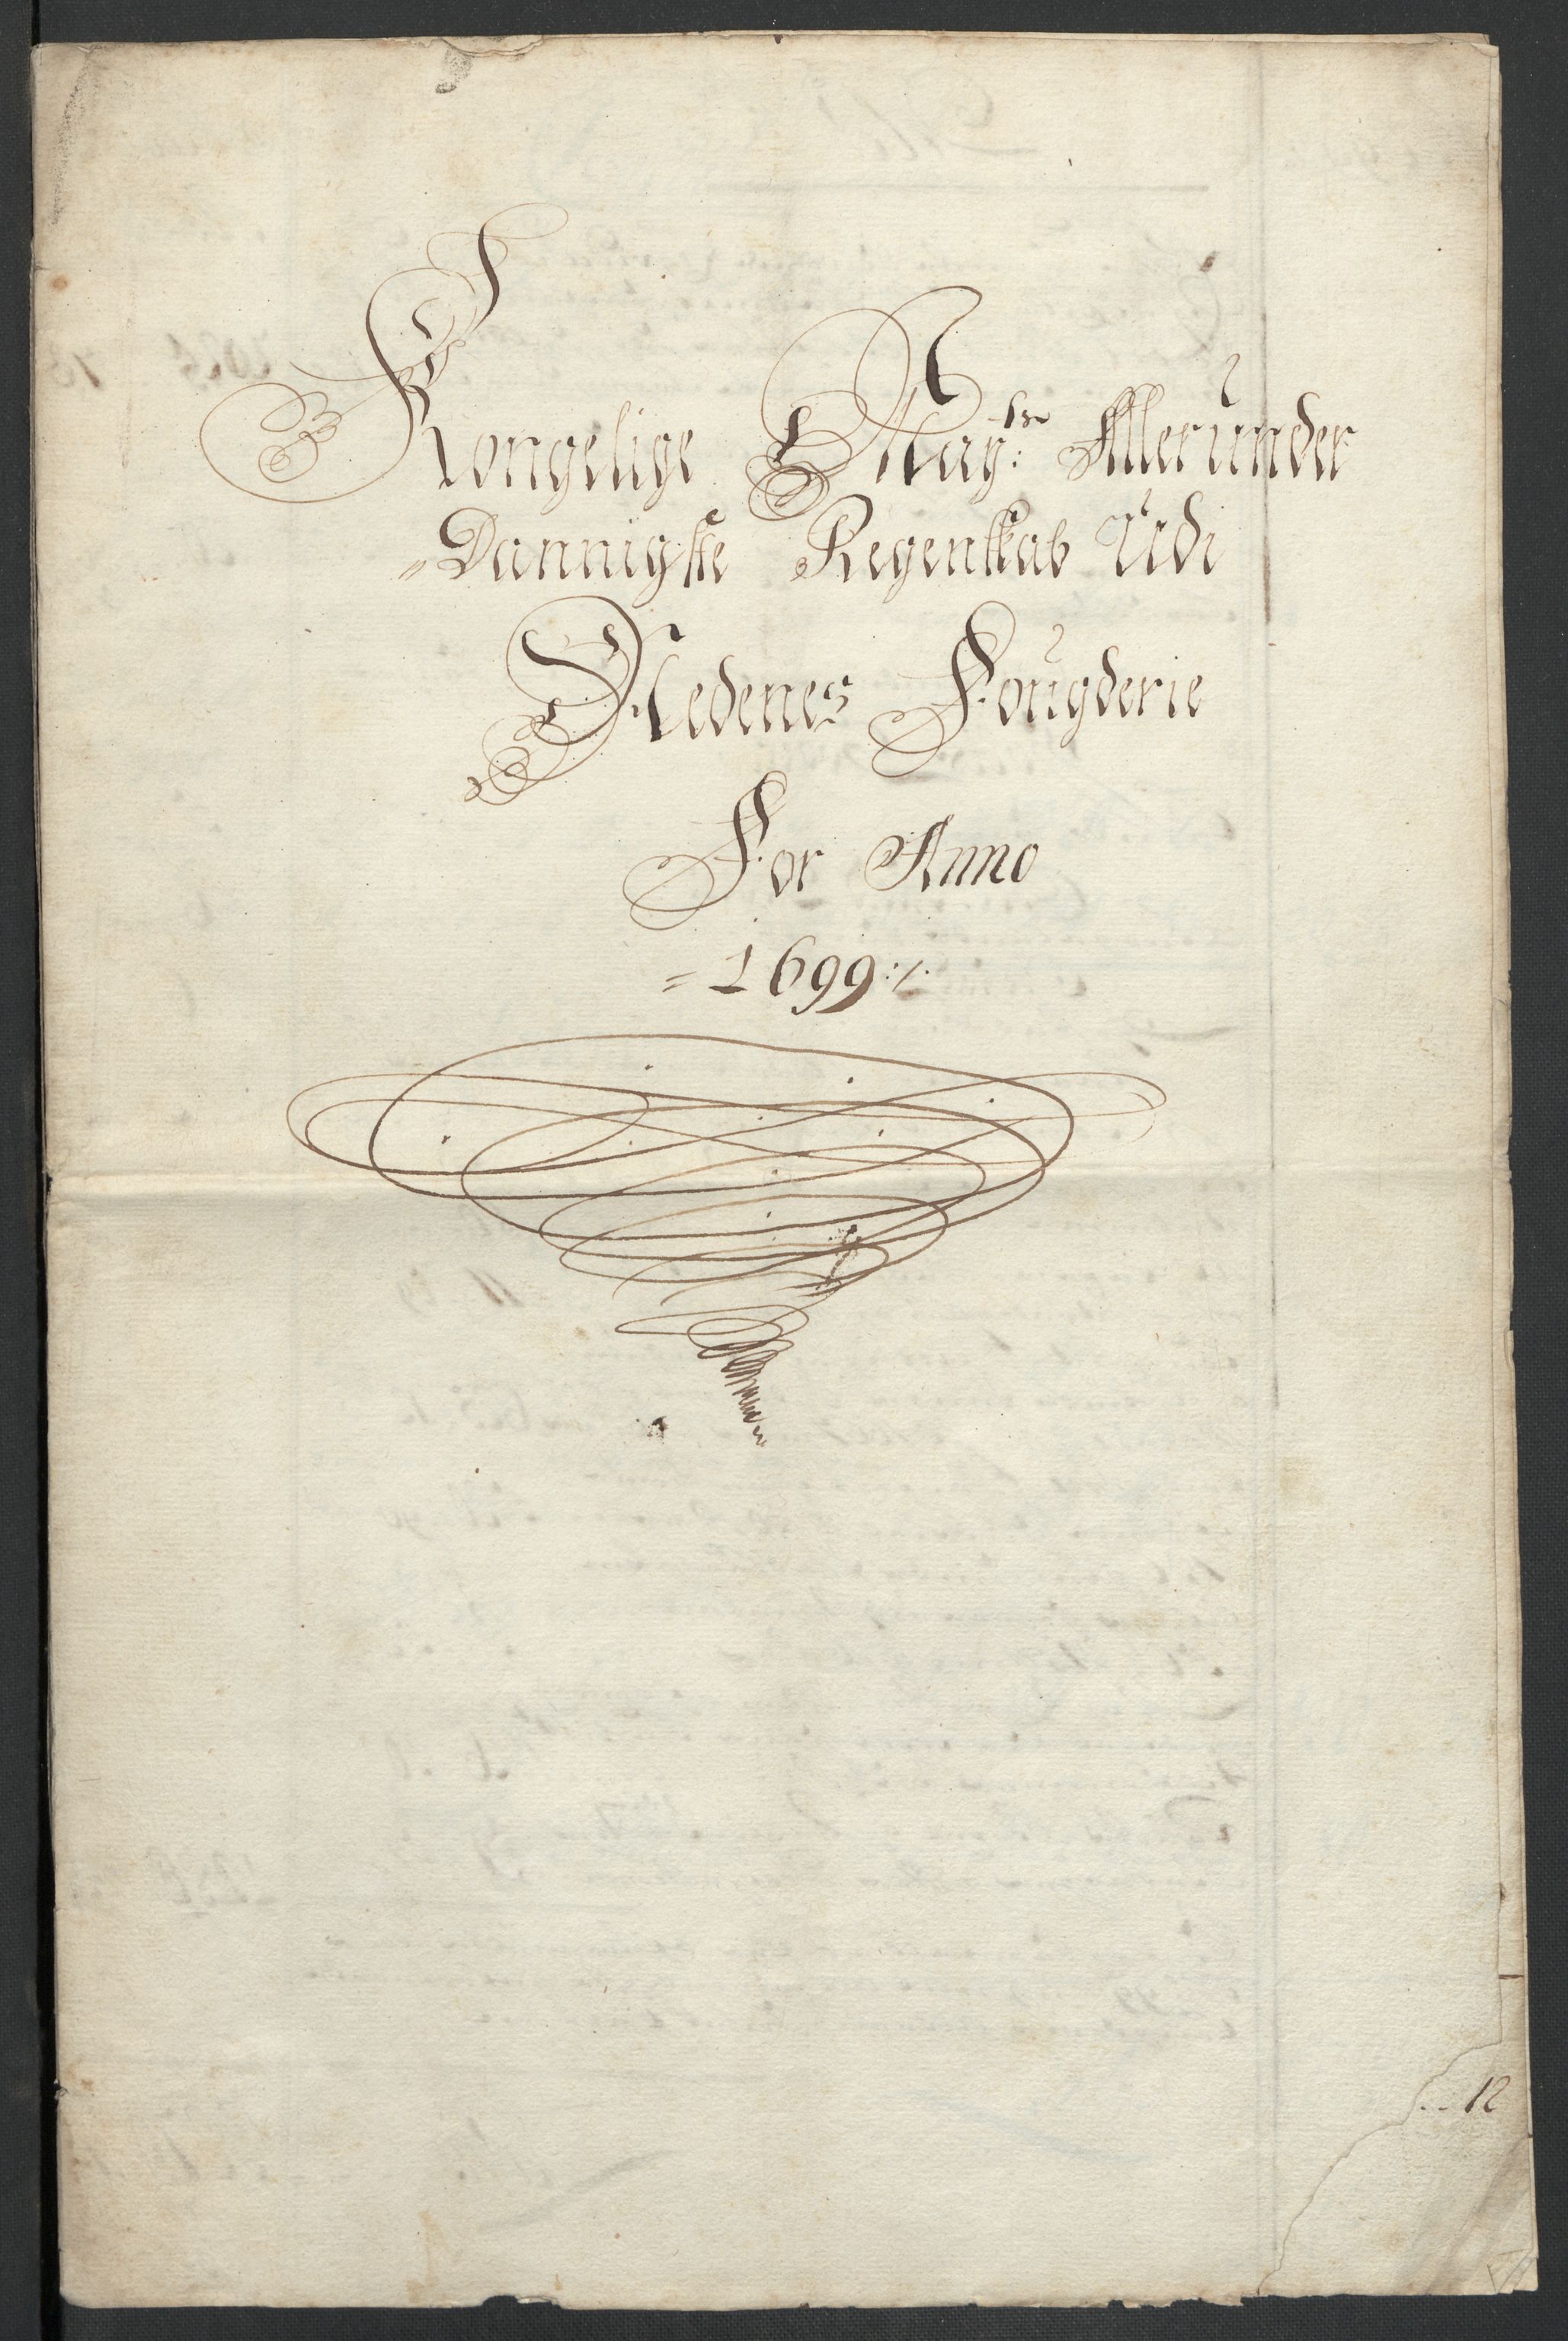 Kongelige May:ts Allerunder
=Dannigste Regenskab Udi
Nedenes Fougderie
For Anno
=1699:/.
12